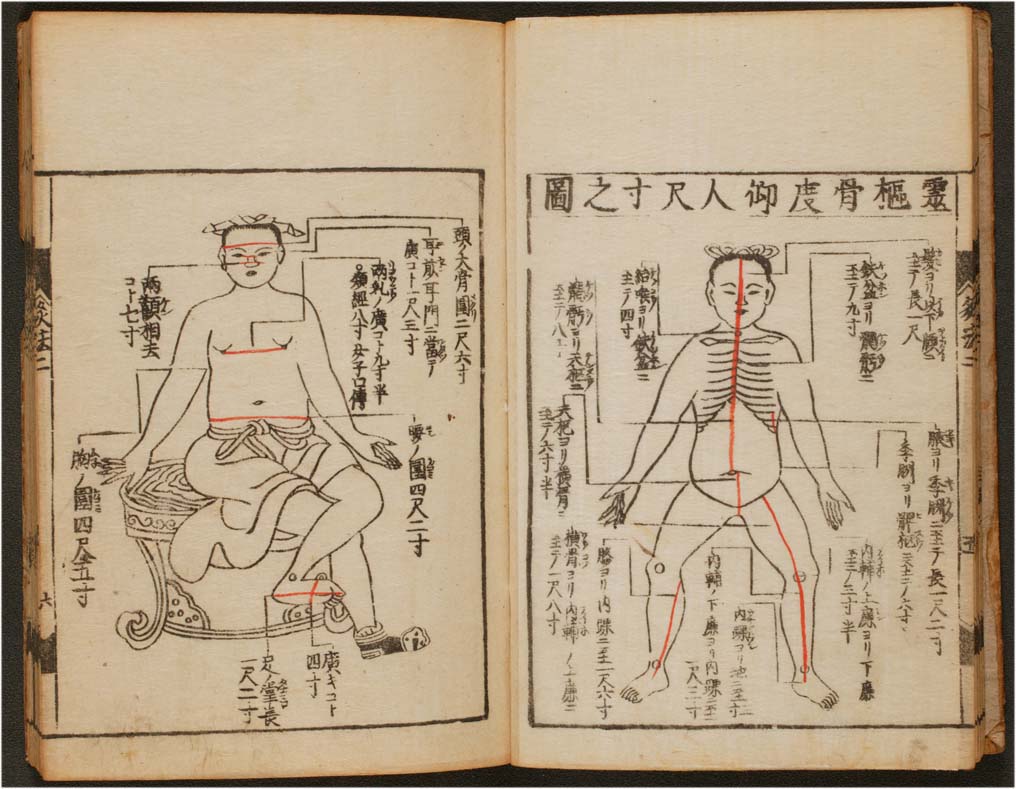 靈樞骨度仰人尺寸之圖
髮ヨリ以下頤ニ
至テ長一尺
缺盆ヨリ𩩲骬ニ
至テ九寸
結喉ヨリ缺盆ニ
至テ四寸
𩩲骬ヨリ天樞ニ
至テ八寸
天樞ヨリ横骨ニ
至テ六寸半
横骨ヨリ内輔ノ上廉ニ
至テ一尺八寸
腋ヨリ季脇ニ至テ長一尺二寸
季脇ヨリ髀樞ニ至ニノ六寸
内輔ノ上廉ヨリ下廉
至ニノ三寸半
内輔ノ下廉ヨリ内踝ニ至
一尺三寸
内踝ヨリ地ニ至二寸
膝ヨリ内踝ニ至一尺六寸
頭ノ大骨圍二尺六寸
耳前耳門ニ當テ
廣コト一尺三寸
兩乳ノ廣コト九寸半
兩顴相去
コト七寸
腰ノ圍四尺二寸
胸ノ圍四尺五寸
廣サコト
四寸
足ノ掌長
一尺二寸
六